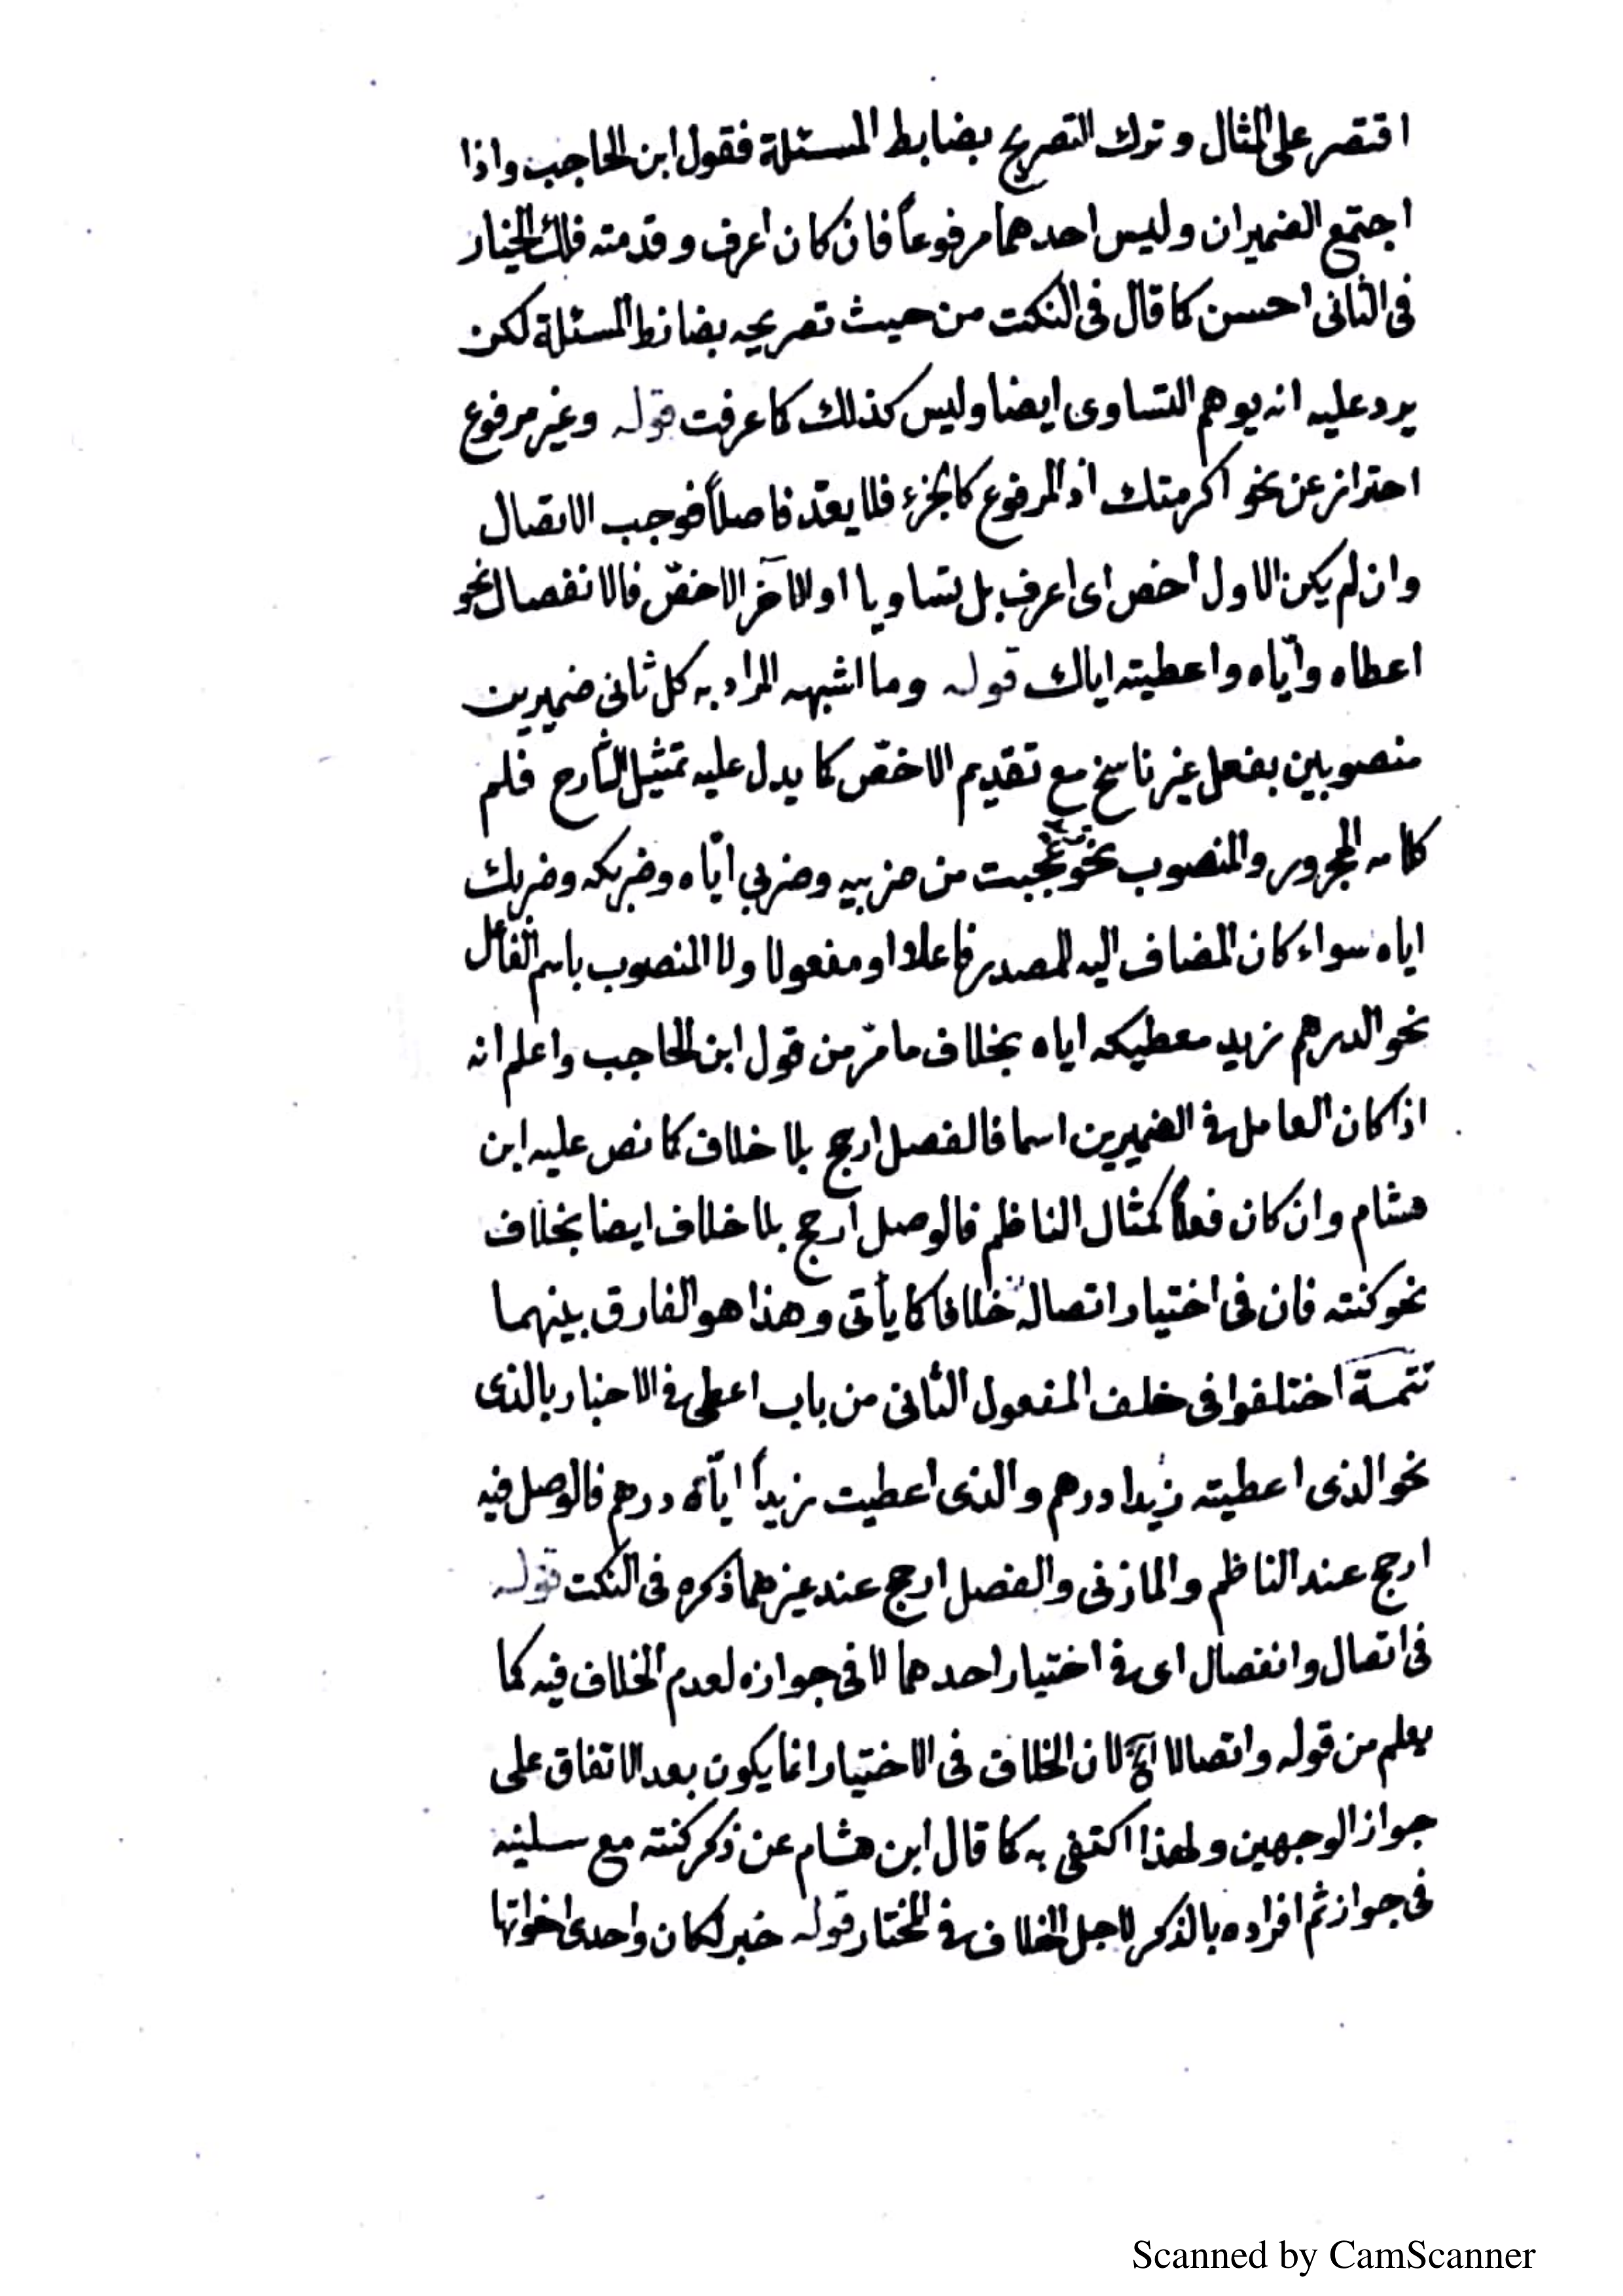 اقتصر على المثال وترك التصريح بضابط المسئلة فقول ابن الحاجب واذا
اجتمع الضميران وليس احدهما مرفوعاً فان كان اعرف وقدمته فلك الخيار
فى الثانى احسن كا قال فى النكت من حيث تصريحه بضابط المسئلة لكن
يرد عليه انه يوهم التساوى ايضا وليس كذلك كا عرفت قوله وغير مرفوع
احتراز عن نحو اكرمتك اذ المرفوع كالجزء فلا يعدّ فاصلاً فوجب الاتصال
وان لم يكن الاول اخص اى اعرف بل تساويا او الآخر الاخصّ فالانفصال نحو
اعطاه وايّاه واعطيته اياك قوله وما اشبهه المراد به كل ثانى ضميرين
منصوبين بفعل غير ناسخ مع تقديم الاخصّ كا يدل عليه تمثيل الشارح فلم
كلامه المجرور والمنصوب نحو عجبت من ضربيه وضربي ايّاه وضربكه وضربك
اياه سواء كان المضاف اليه المصدر فاعلا او مفعولا ولا المنصوب باسم الفاعل
نحو الدرهم زيد معطيكه اياه بخلاف ما مرّ من قول ابن الحاجب واعلم انه
اذا كان العامل فى الضميرين اسما فالفصل ارجح بلا خلاف كا نص عليه ابن
هشام وان كان فعلاً كمثال الناظم فالوصل ارجح بلا خلاف ايضا بخلاف
نحو كنته فان فى اختيار اتصاله خلافا كا يأتى وهذا هو الفارق بينهما
تتمة اختلفوا فى خلف المفعول الثانى من باب اعطى فى الاخبار بالذى
نحو الذى اعطيته زيدا درهم والذى اعطيت زيداً ايّاه درهم فالوصل فيه
ارجح عند الناظم والمازنى والفصل ارجح عند غيرهما ذكره فى النكت قوله
فى اتصال وانفصال اى فى اختيار احدهما لا فى جوازه لعدم الخلاف فيه كما
يعلم من قوله واتصالا الخ لان الخلاف فى الاختيار انما يكون بعد الاتفاق على
جواز الوجهين ولهذا اكتفى به كا قال ابن هشام عن ذكر كنته مع سلنيه
فى جواز ثم افراده بالذكر لاجل الخلاف فى المختار قوله خبر لكان واحدى اخواتها
Scanned by CamScanner